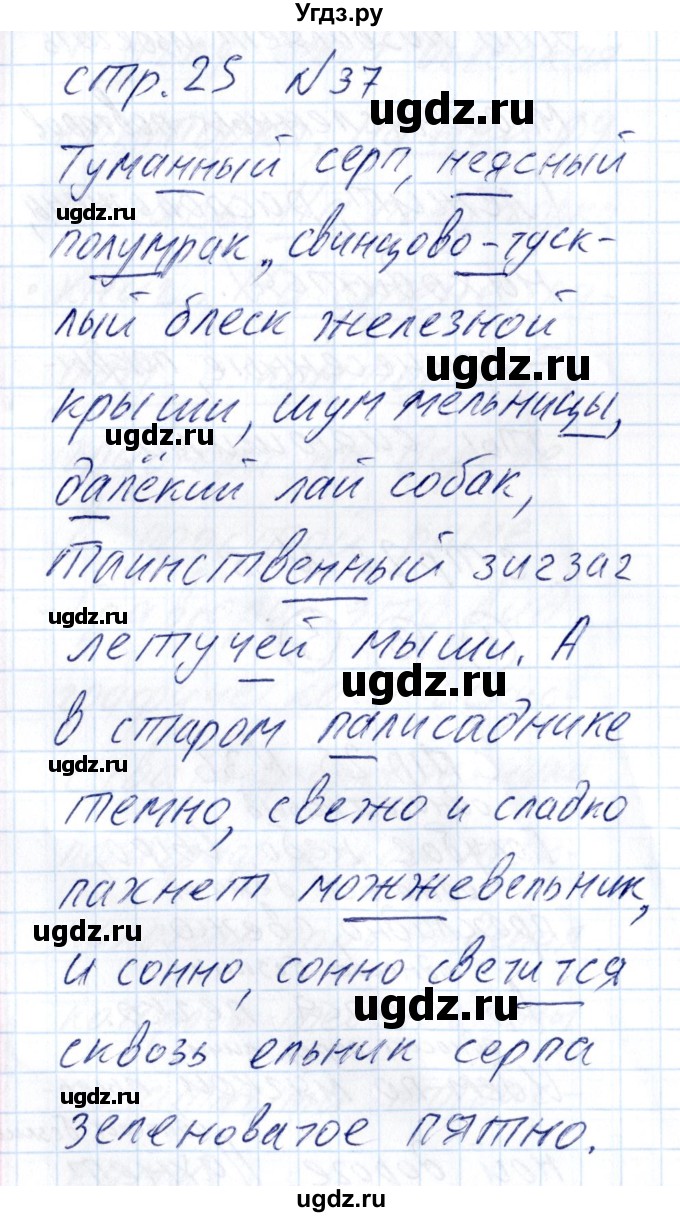 Угдз.ру
стр. 25 №37
ugdz.ru
Туманный серп, неясный
ugdz.ru
полумрак, свинцово-туск-
лый блеск железной
ugdz.ru
крыши, шум мельницы,
ugdz.ru
далёкий лай собак,
таинственный зигзаг
ugdz.ru
летучей мыши. А
ugdz.ru
в старом палисаднике
ugdz.ru
темно, свежо и сладко
пахнет можжевельник,
ugdz.ru
и сонно, сонно светится
ugdz.ru
сквозь ельник серпа
ugdz.ru
зеленоватое пятно.
ugdz.ru